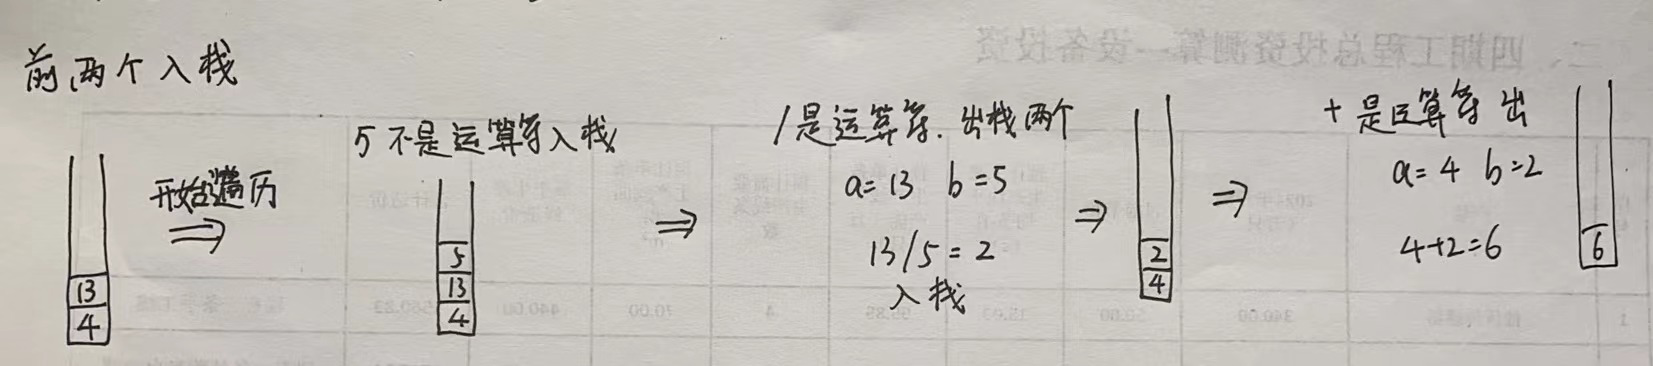 前两个入栈
13
4
开始遍历
⇒
5不是运算符入栈
5
13
4
⇒
/是运算符.出栈两个
a=13 b=5
13/5=2
入栈
⇒
2
4
⇒
+是运算符 出
a=4 b=2
4+2=6
6
二、四期工程总投资测算—设备投资